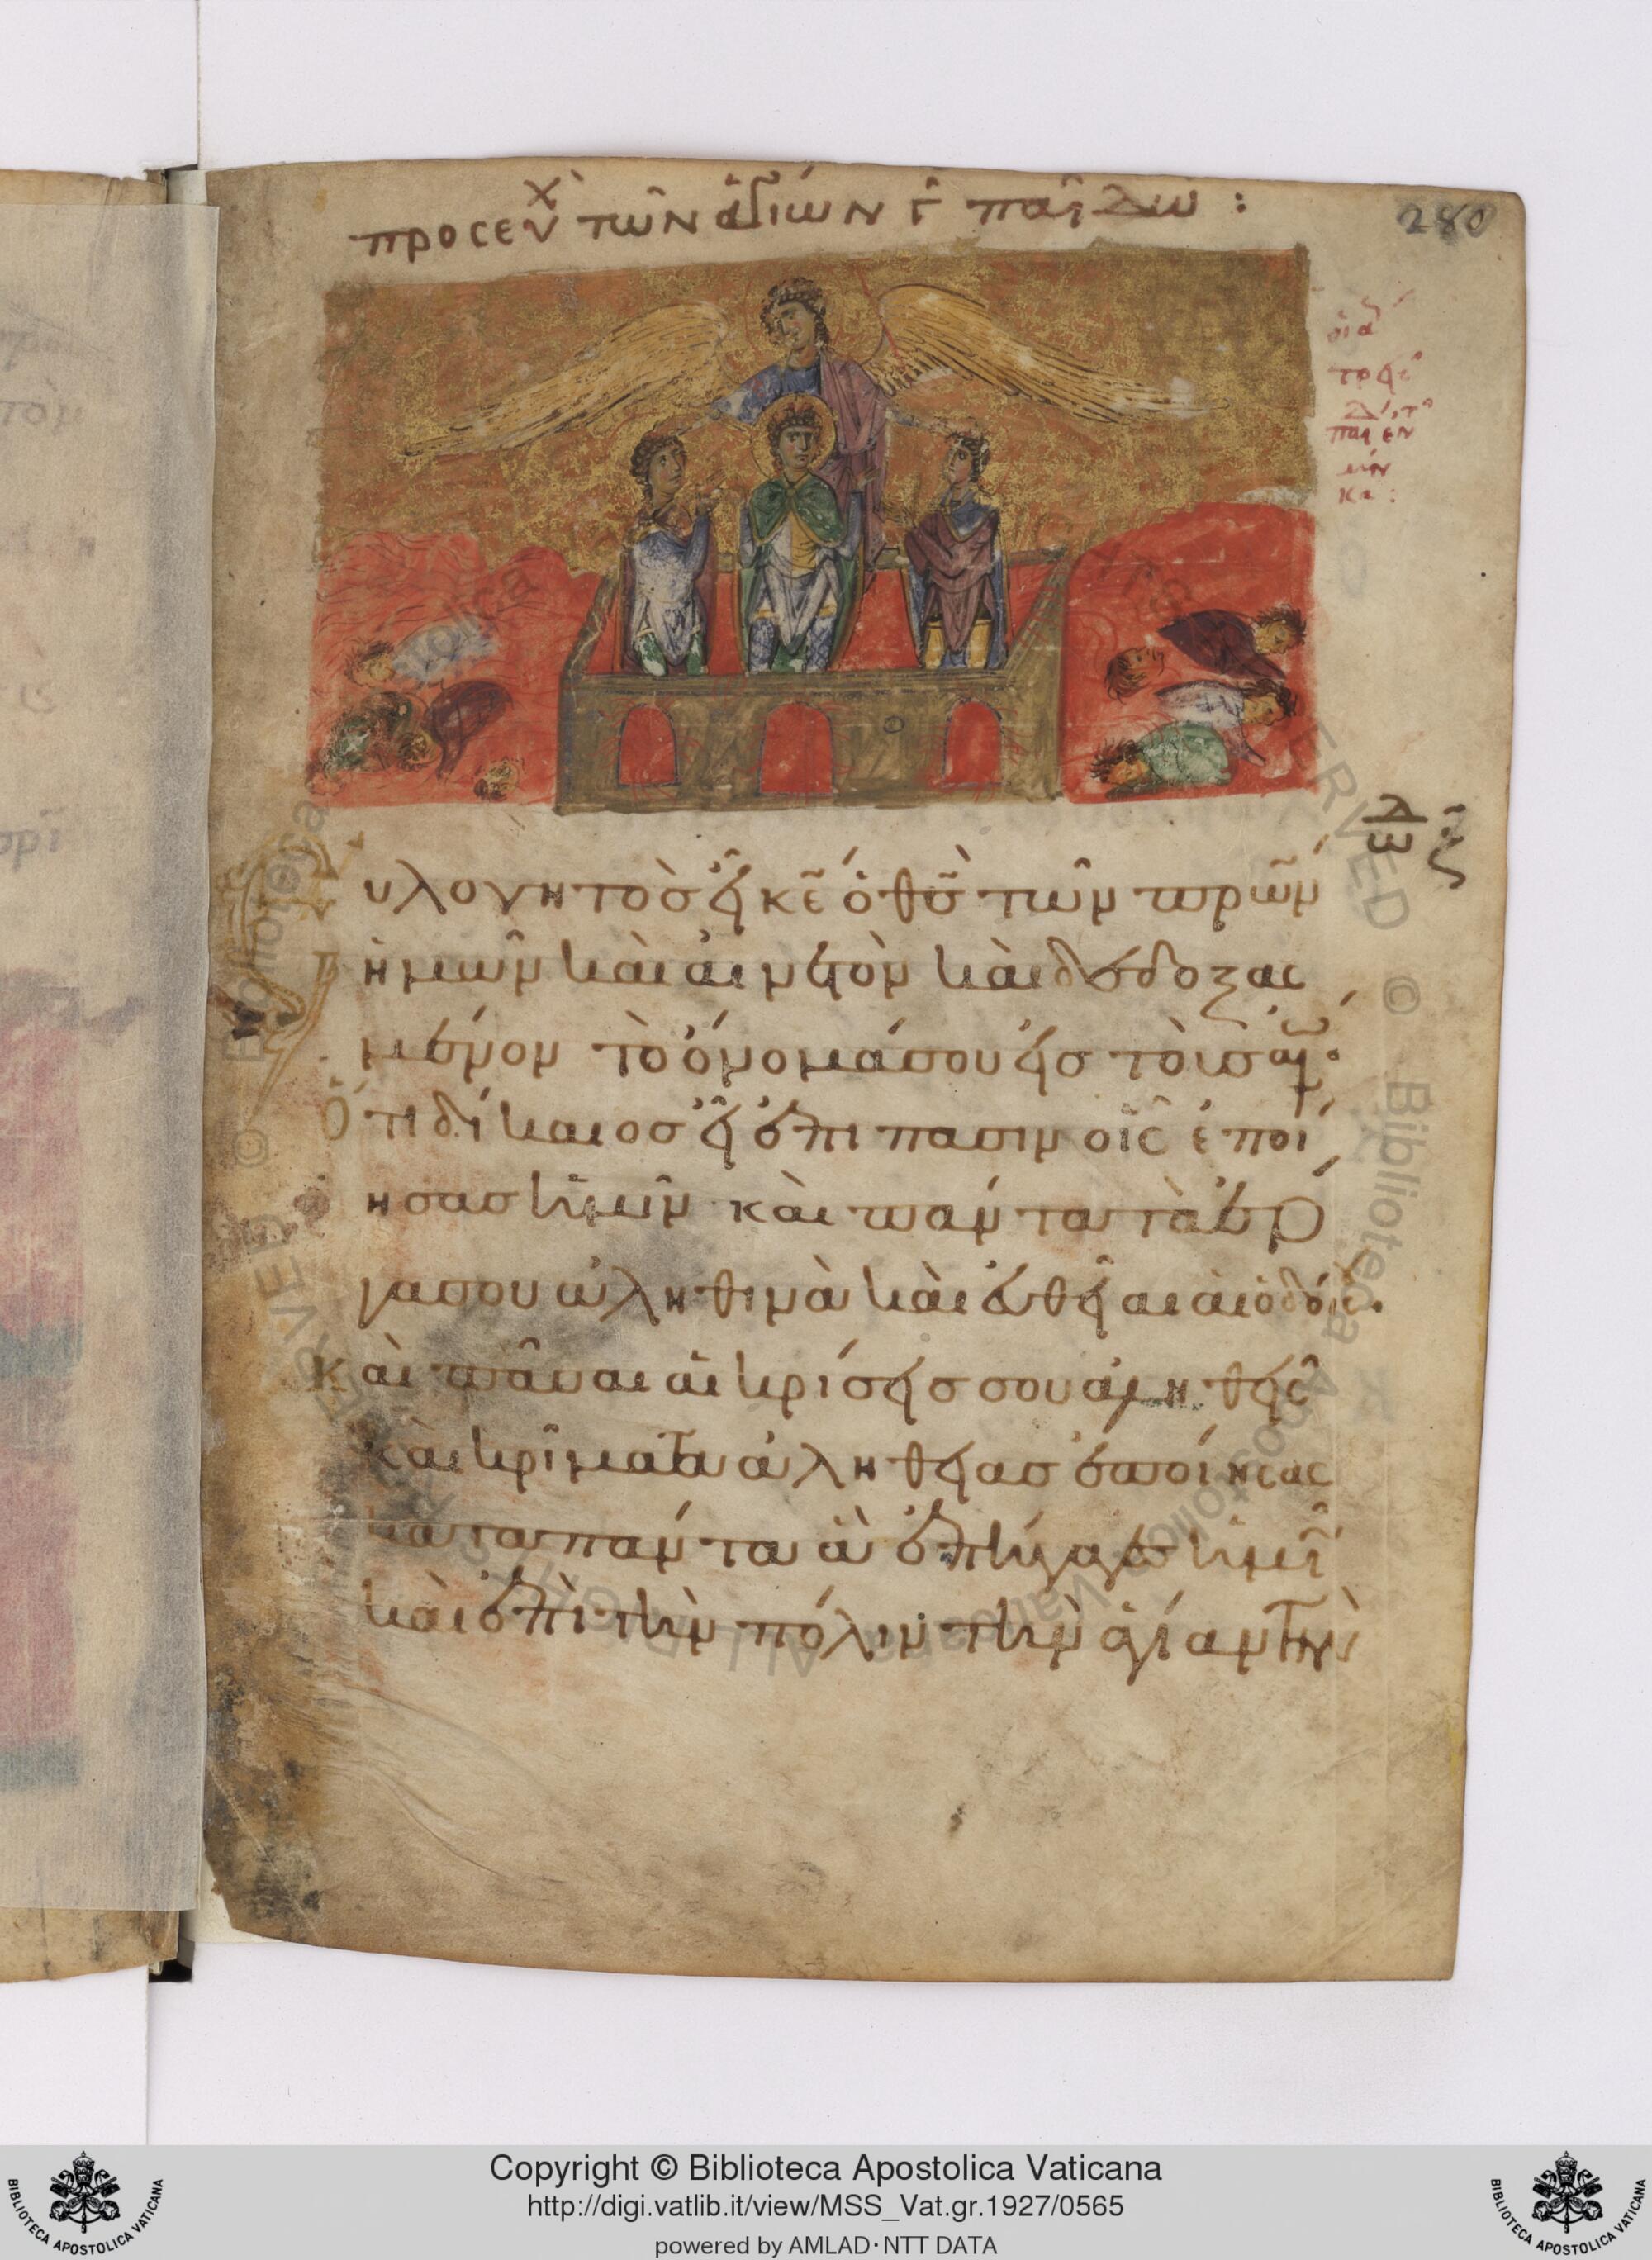 προσευχ τῶν ἁγίων γ παίδω :
280
ῳδ ζ
Ευλογητὸσ εἶ κε ὁ θσ τῶν πρων
ἡμῶν καὶ αἰνετὸν καὶ δεδοξας
μένον τὸ ὄνομά σου εἰσ τοὺσ αἰω·
Ὅτι δίκαιοσ εἶ ἐπι πασιν οἷς ἐποί
ησασ ἡμῖν καὶ πάντα τὰ ἔρ
γα σου ἀληθινὰ καὶ εὐθεῖαι αἱ ὁδοί ς·
Καὶ πᾶσαι αἱ κρίσεισ σου ἀληθεῖς
καὶ κρίματα ἀληθείασ ἐποίησας
κατα πάντα ἃ ἐπήγαγεσ ἡμῖ
καὶ ἐπὶ τὴν πόλιν τὴν ἁγίαν τὴν
Copyright © Biblioteca Apostolica Vaticana
http://digi.vatlib.it/view/MSS_Vat.gr.1927/0565
powered by AMLAD·NTT DATA
BIBLIOTECA APOSTOLICA VATICANA
BIBLIOTECA APOSTOLICA VATICANA